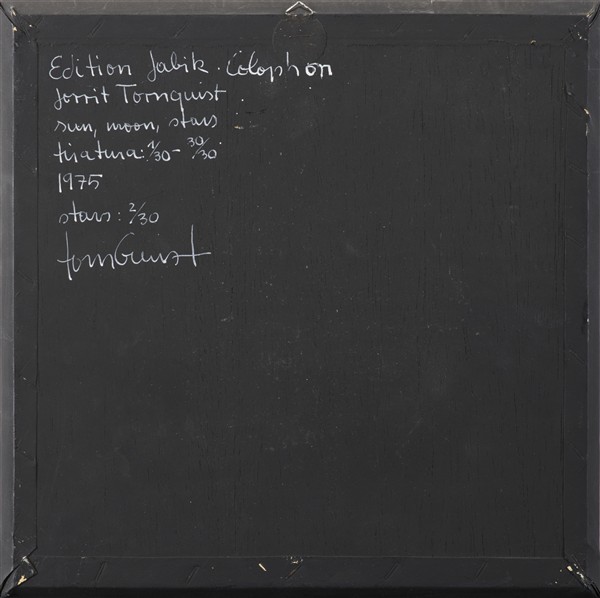 Edition Jabik · Colophon
Jorrit Tornquist
sun, moon, stars
tiratura: 1/30 - 30/30
1975
stars: 2/30
tornquist